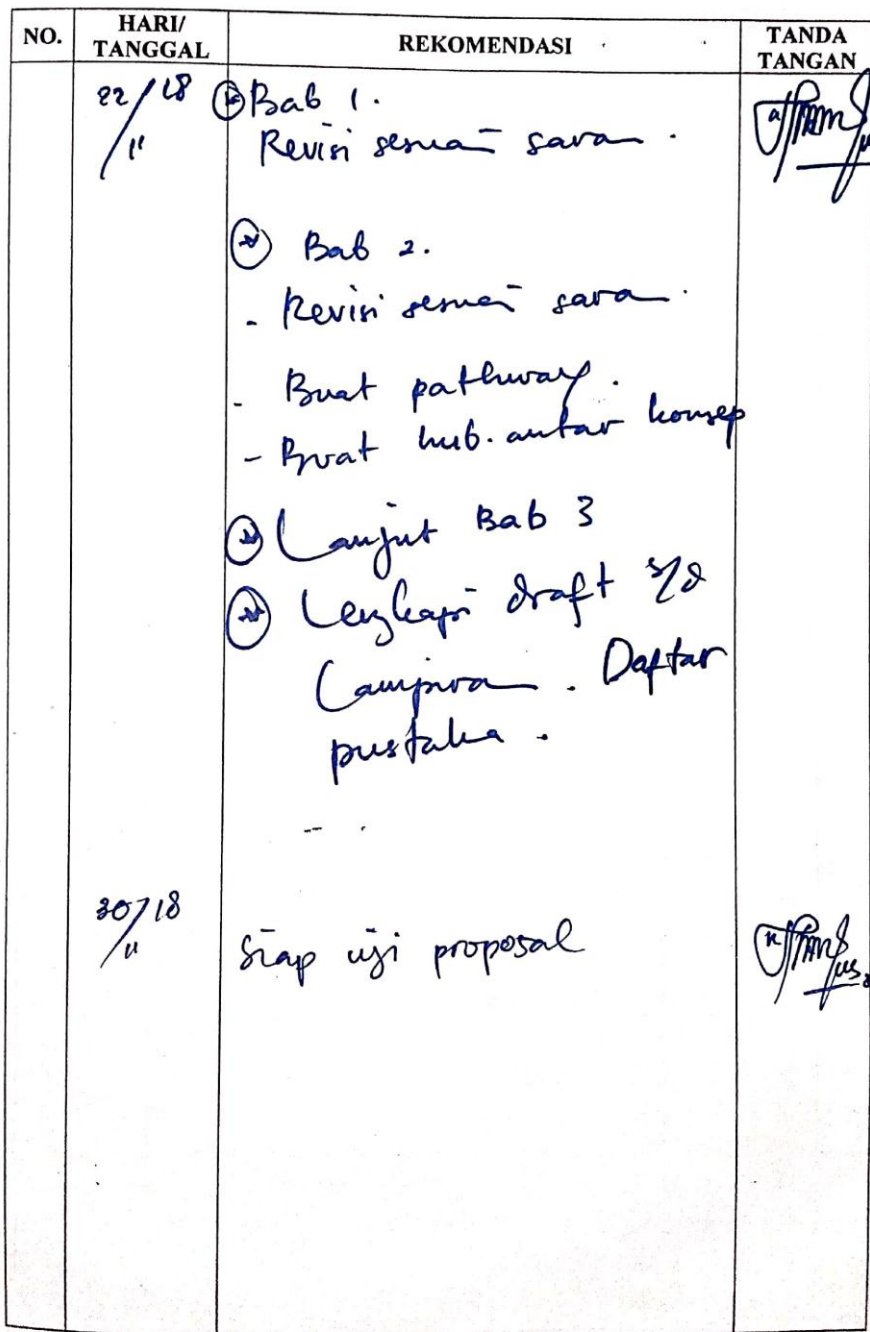 NO.
HARI/
TANGGAL
REKOMENDASI
TANDA
TANGAN
22/18
11
Bab 1.
Revisi sesuai saran.
Bab 2.
- Revisi sesuai saran.
- Buat pathway.
- Buat hub. antar konsep
Lanjut Bab 3
Lengkapi draft s/d
Lampiran. Daftar
pustaka.
30/18
11
Siap uji proposal